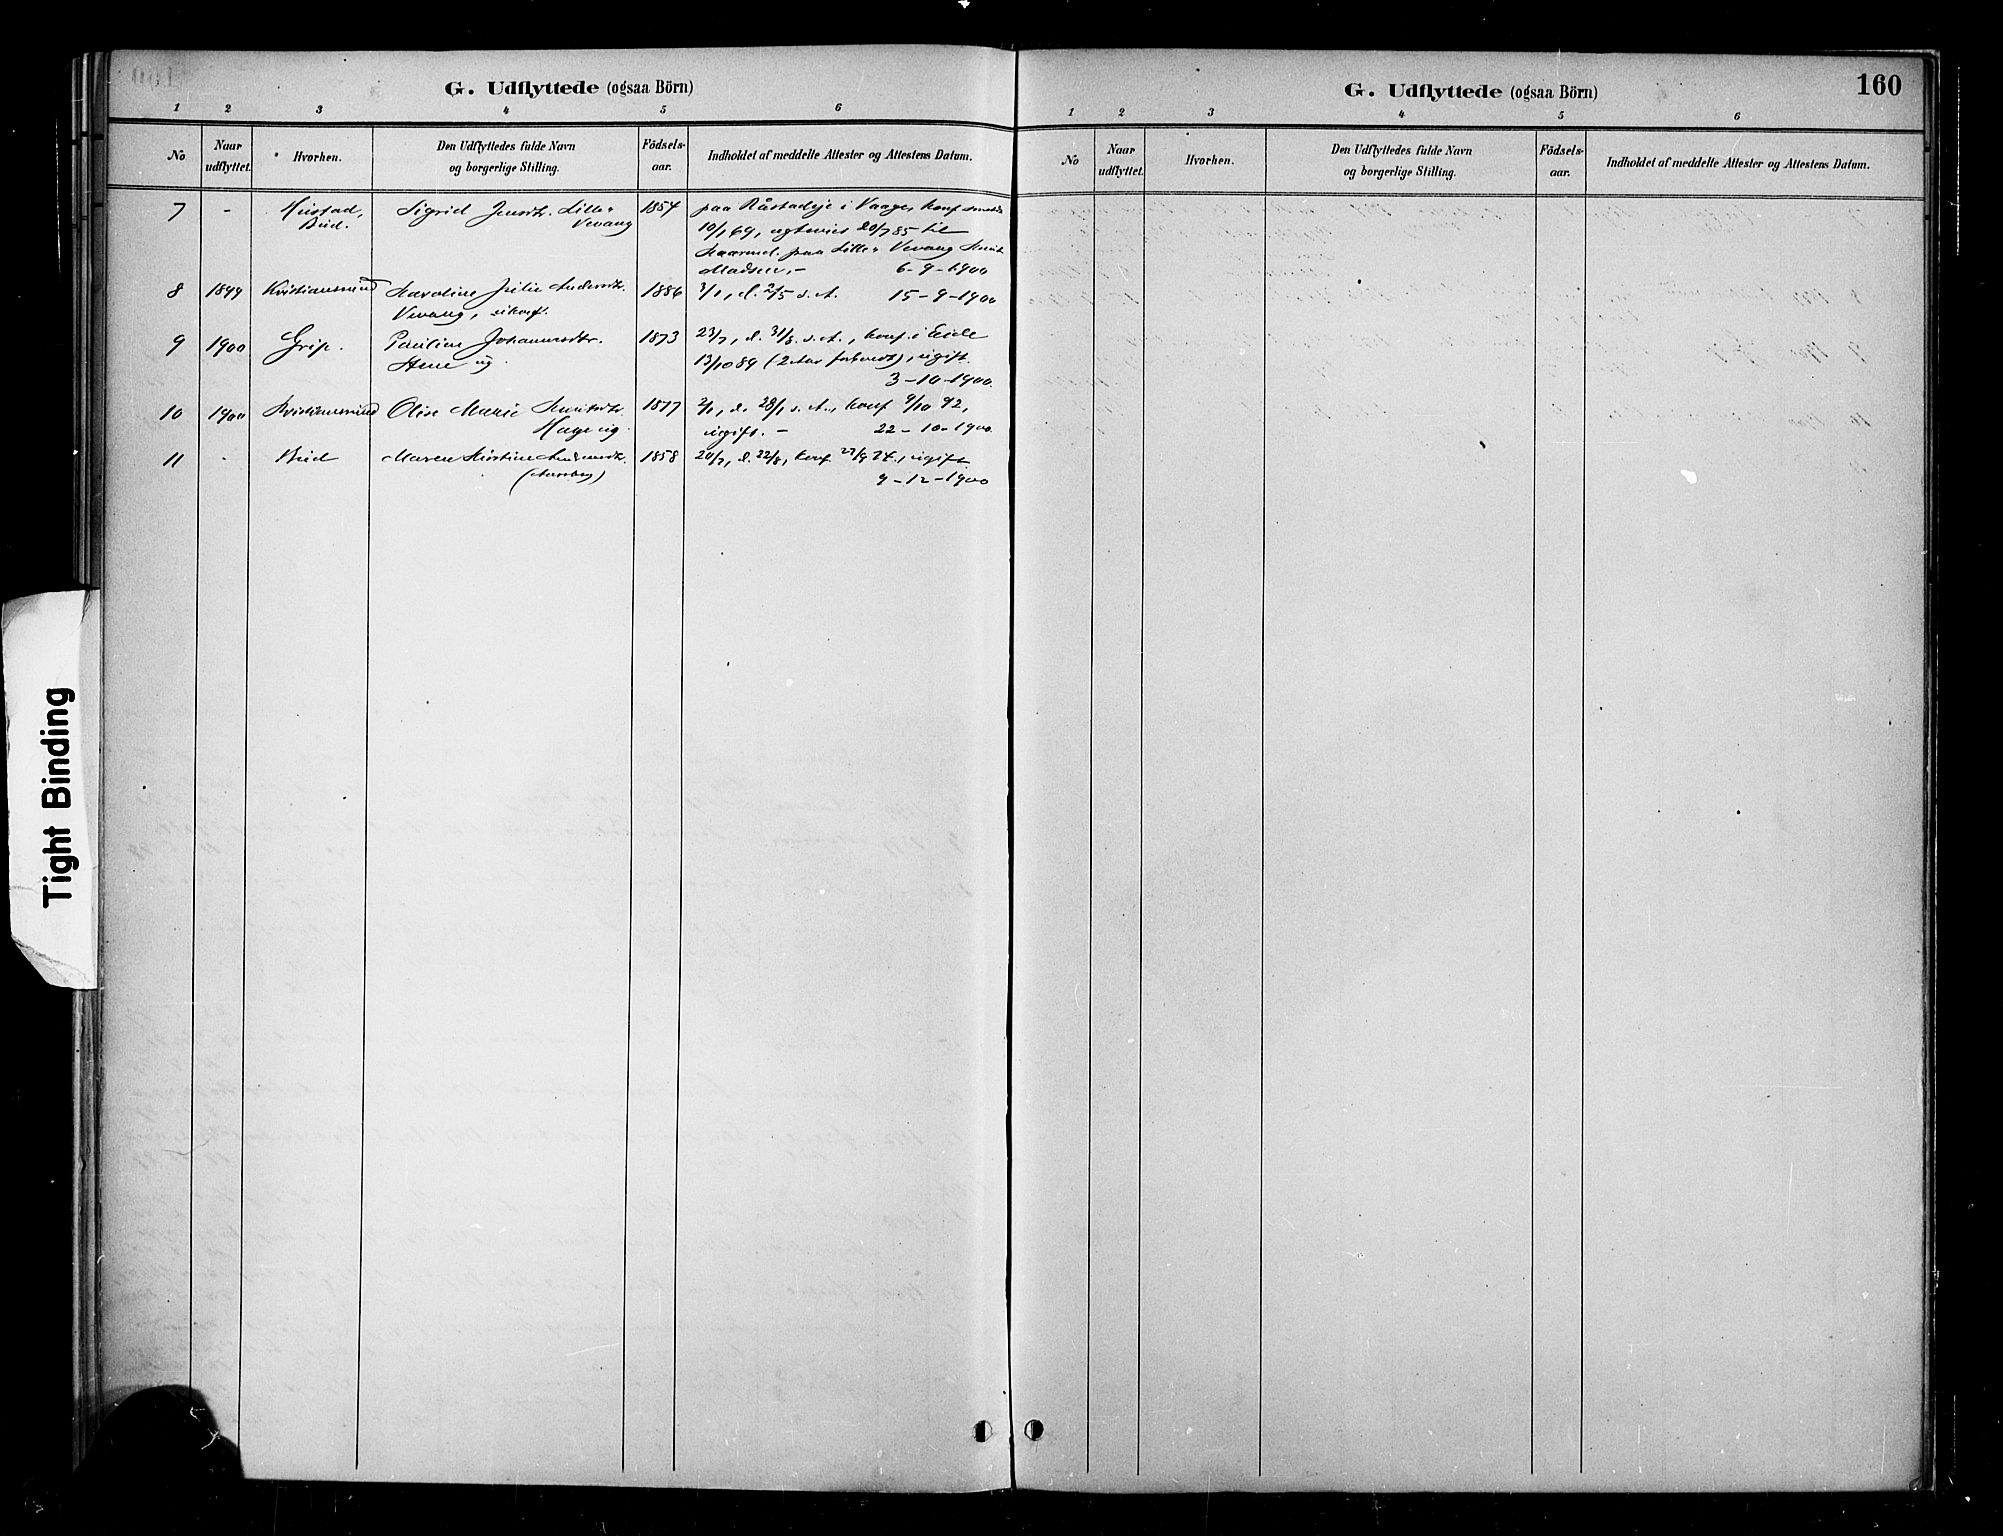 G. Udflyttede (ogsaa Börn)
1 2 3 4 5 6
No
Naar udflyttet.
Hvorhen.
Den Udflyttedes fulde Navn og borgerlige Stilling.
Födsels-aar.
Indholdet af meddelte Attester og Attestens Datum.
7 - Hustad, Bud. Sigrid Jensdtr. Lille Vevang 1854 paa i Vaage, konf
10/ 69, 20/7 85 til
paa Lille Vevang
Madsen, - 6-9-1900
8 1899 Kristianssund Karoline Julie Andersdtr. 1886 3/1, d. 2/5 s. A. 15-9-1900
Vevang, ukonf.
9 1900 Grip. Pauline Johannesdtr. 1873 23/7, d. 31/8 s. A., konf. i Eide
ug. 13/10 89 (2 Aar forberedt), ugift.
3-10-1900.
10 1900 Kristianssund Olise Marie Knutsdtr. 1877 2/1, d. 28/1 s. A., konf 9/10 92,
ug. ugift. - 22-10-1900.
11 - Bud Maren Kirstine 1858 20/7, d. 22/8, konf 27/9 74, ugift.
9-12-1900
G. Udflyttede (ogsaa Börn)
160
1 2 3 4 5 6
No
Naar udflyttet.
Hvorhen.
Den Udflyttedes fulde Navn og borgerlige Stilling.
Födsels-aar.
Indholdet af meddelte Attester og Attestens Datum.
Tight Binding